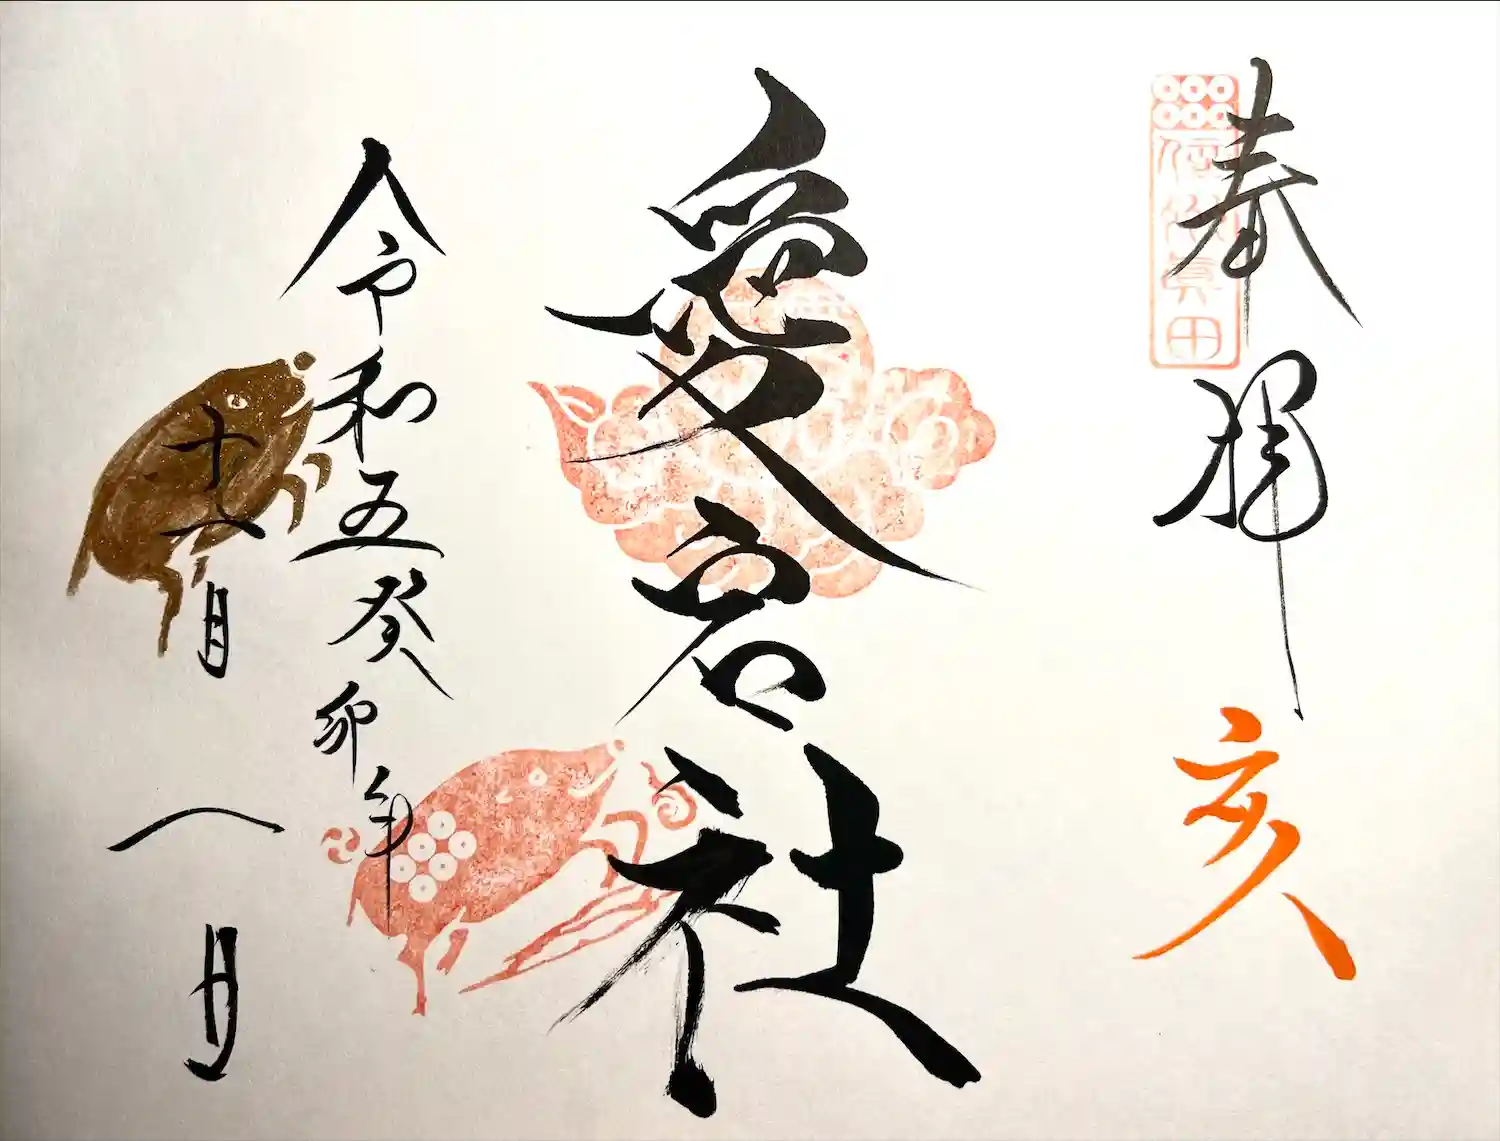 奉拝
信州眞田
亥
愛宕社
令和五癸卯年
十一月一日